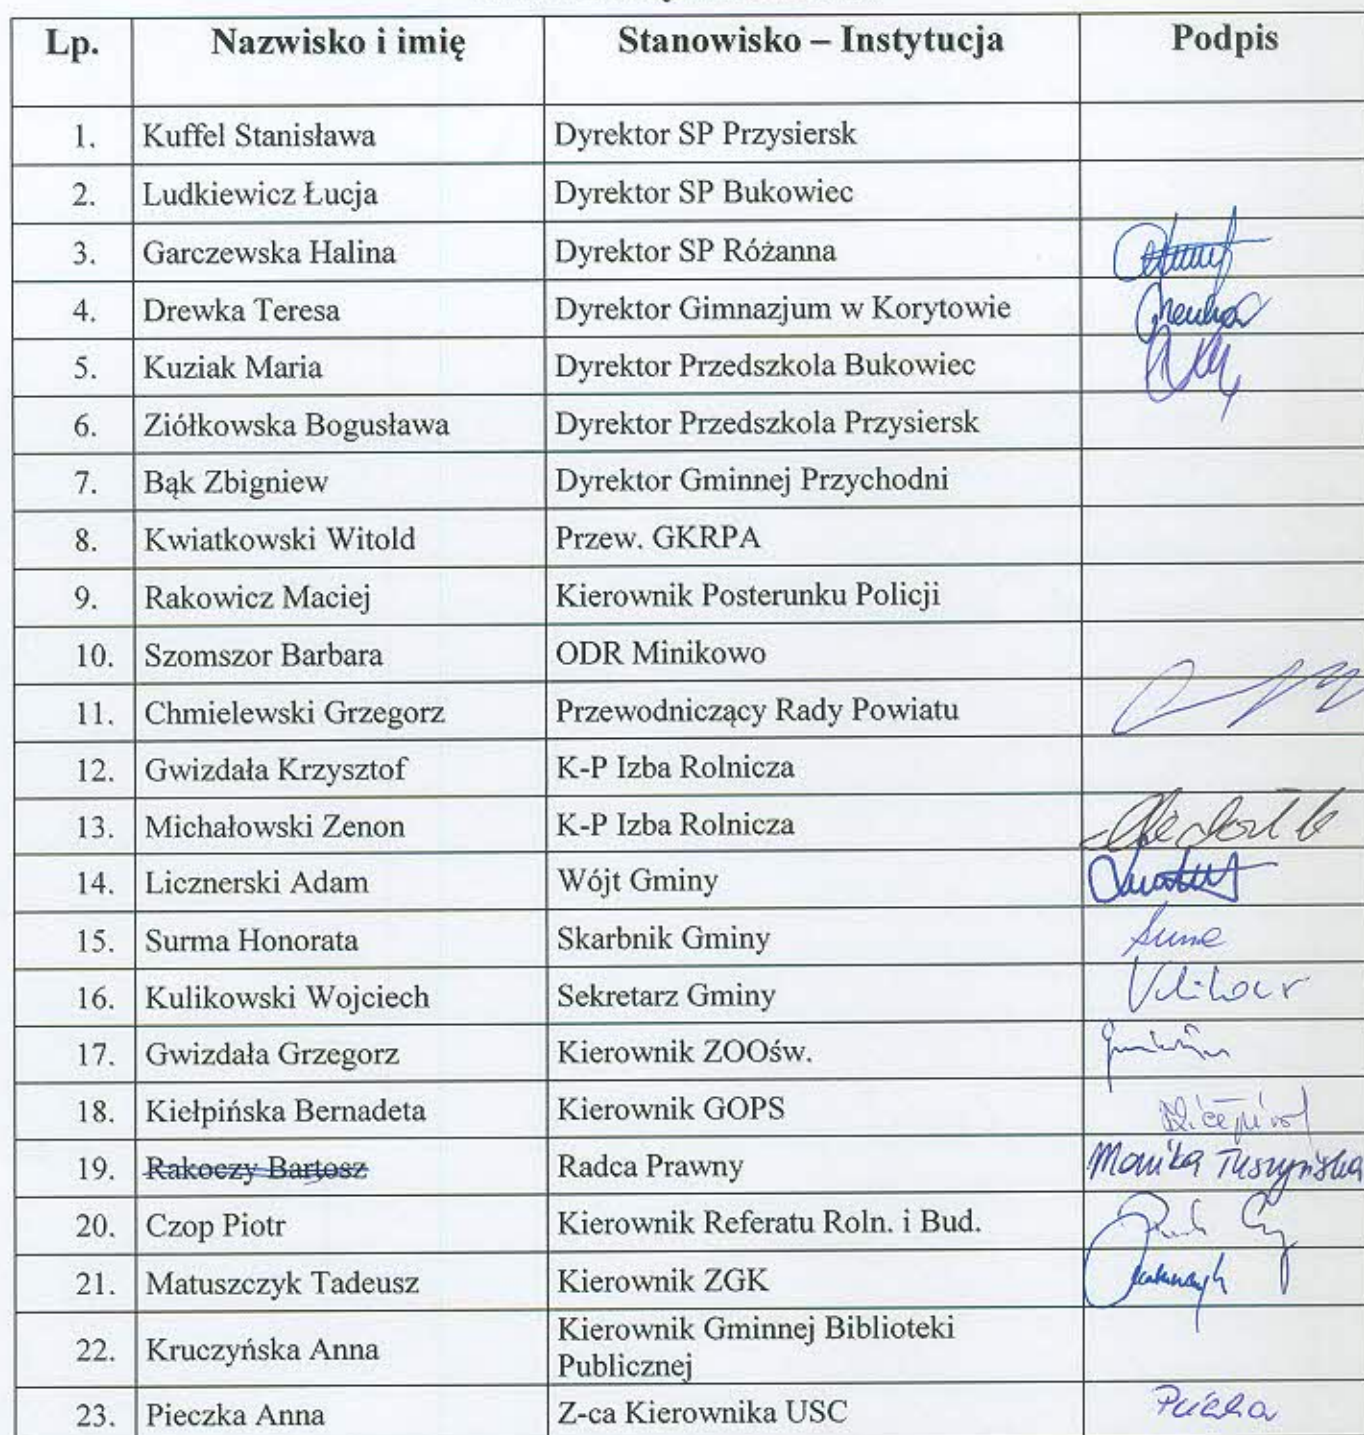 Lp. Nazwisko i imię Stanowisko – Instytucja Podpis
1. Kuffel Stanisława Dyrektor SP Przysiersk
2. Ludkiewicz Łucja Dyrektor SP Bukowiec
3. Garczewska Halina Dyrektor SP Różanna
4. Drewka Teresa Dyrektor Gimnazjum w Korytowie
5. Kuziak Maria Dyrektor Przedszkola Bukowiec
6. Ziółkowska Bogusława Dyrektor Przedszkola Przysiersk
7. Bąk Zbigniew Dyrektor Gminnej Przychodni
8. Kwiatkowski Witold Przew. GKRPA
9. Rakowicz Maciej Kierownik Posterunku Policji
10. Szomszor Barbara ODR Minikowo
11. Chmielewski Grzegorz Przewodniczący Rady Powiatu
12. Gwizdała Krzysztof K-P Izba Rolnicza
13. Michałowski Zenon K-P Izba Rolnicza
14. Licznerski Adam Wójt Gminy
15. Surma Honorata Skarbnik Gminy
16. Kulikowski Wojciech Sekretarz Gminy
17. Gwizdała Grzegorz Kierownik ZOOśw.
18. Kiełpińska Bernadeta Kierownik GOPS
19. Rakoczy Bartosz Radca Prawny Monika Tuszyńska
20. Czop Piotr Kierownik Referatu Roln. i Bud.
21. Matuszczyk Tadeusz Kierownik ZGK
22. Kruczyńska Anna Kierownik Gminnej Biblioteki
Publicznej
23. Pieczka Anna Z-ca Kierownika USC